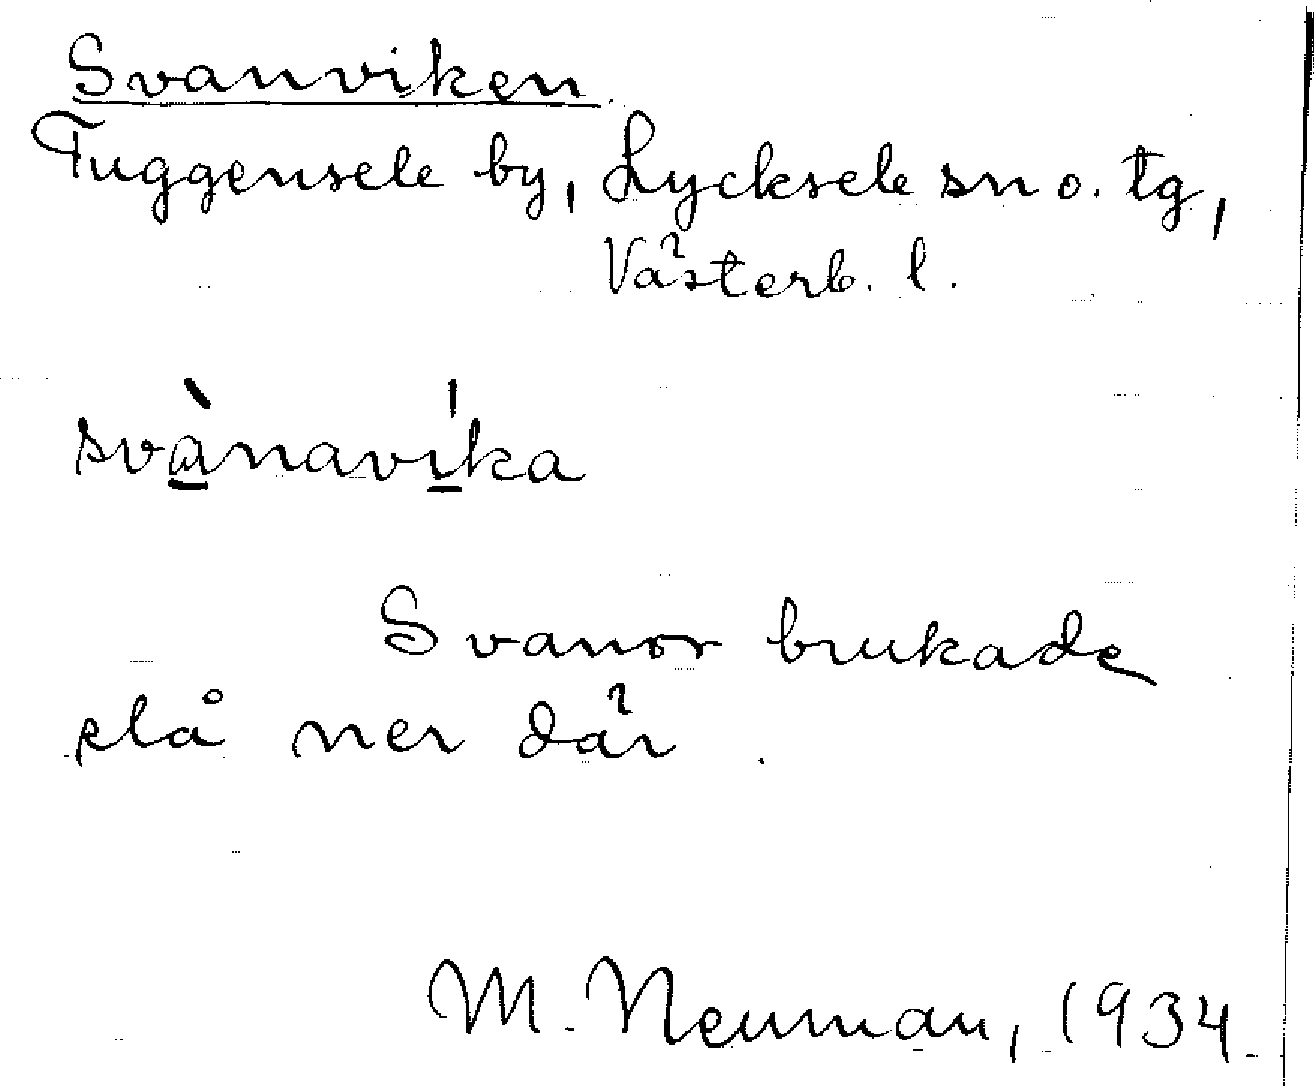 Svanviken
Tuggensele by, Lycksele sn o. tg,
Västerb. l.
svànavíka
Svanor brukade
slå ner där.
M. Neuman, 1934